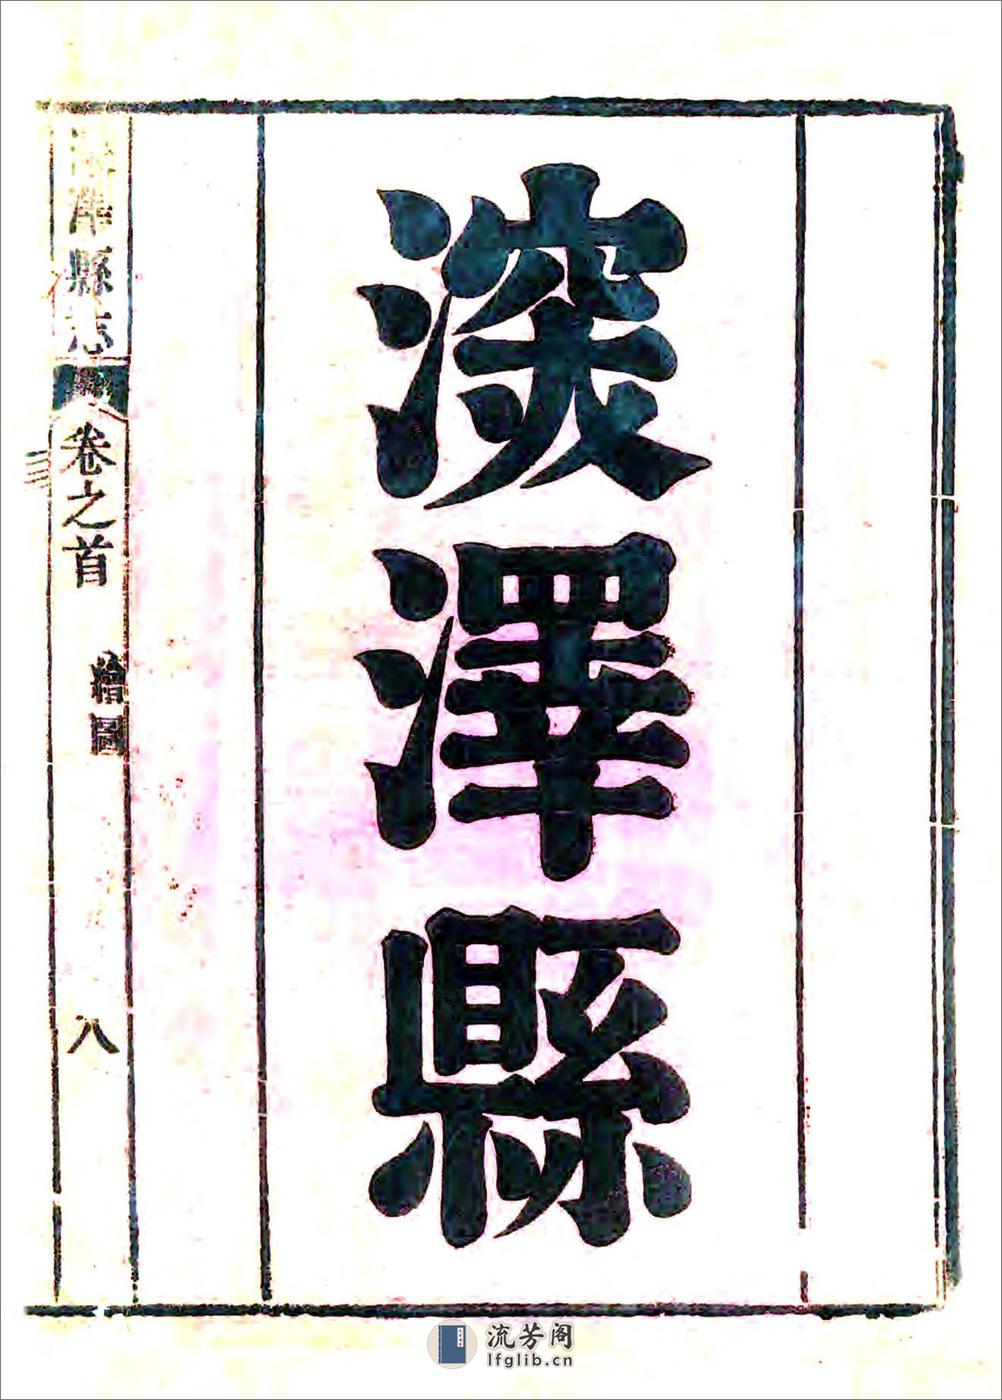 深澤縣
深澤縣志 卷之首 繪圖 八
流芳阁
lfglib.cn